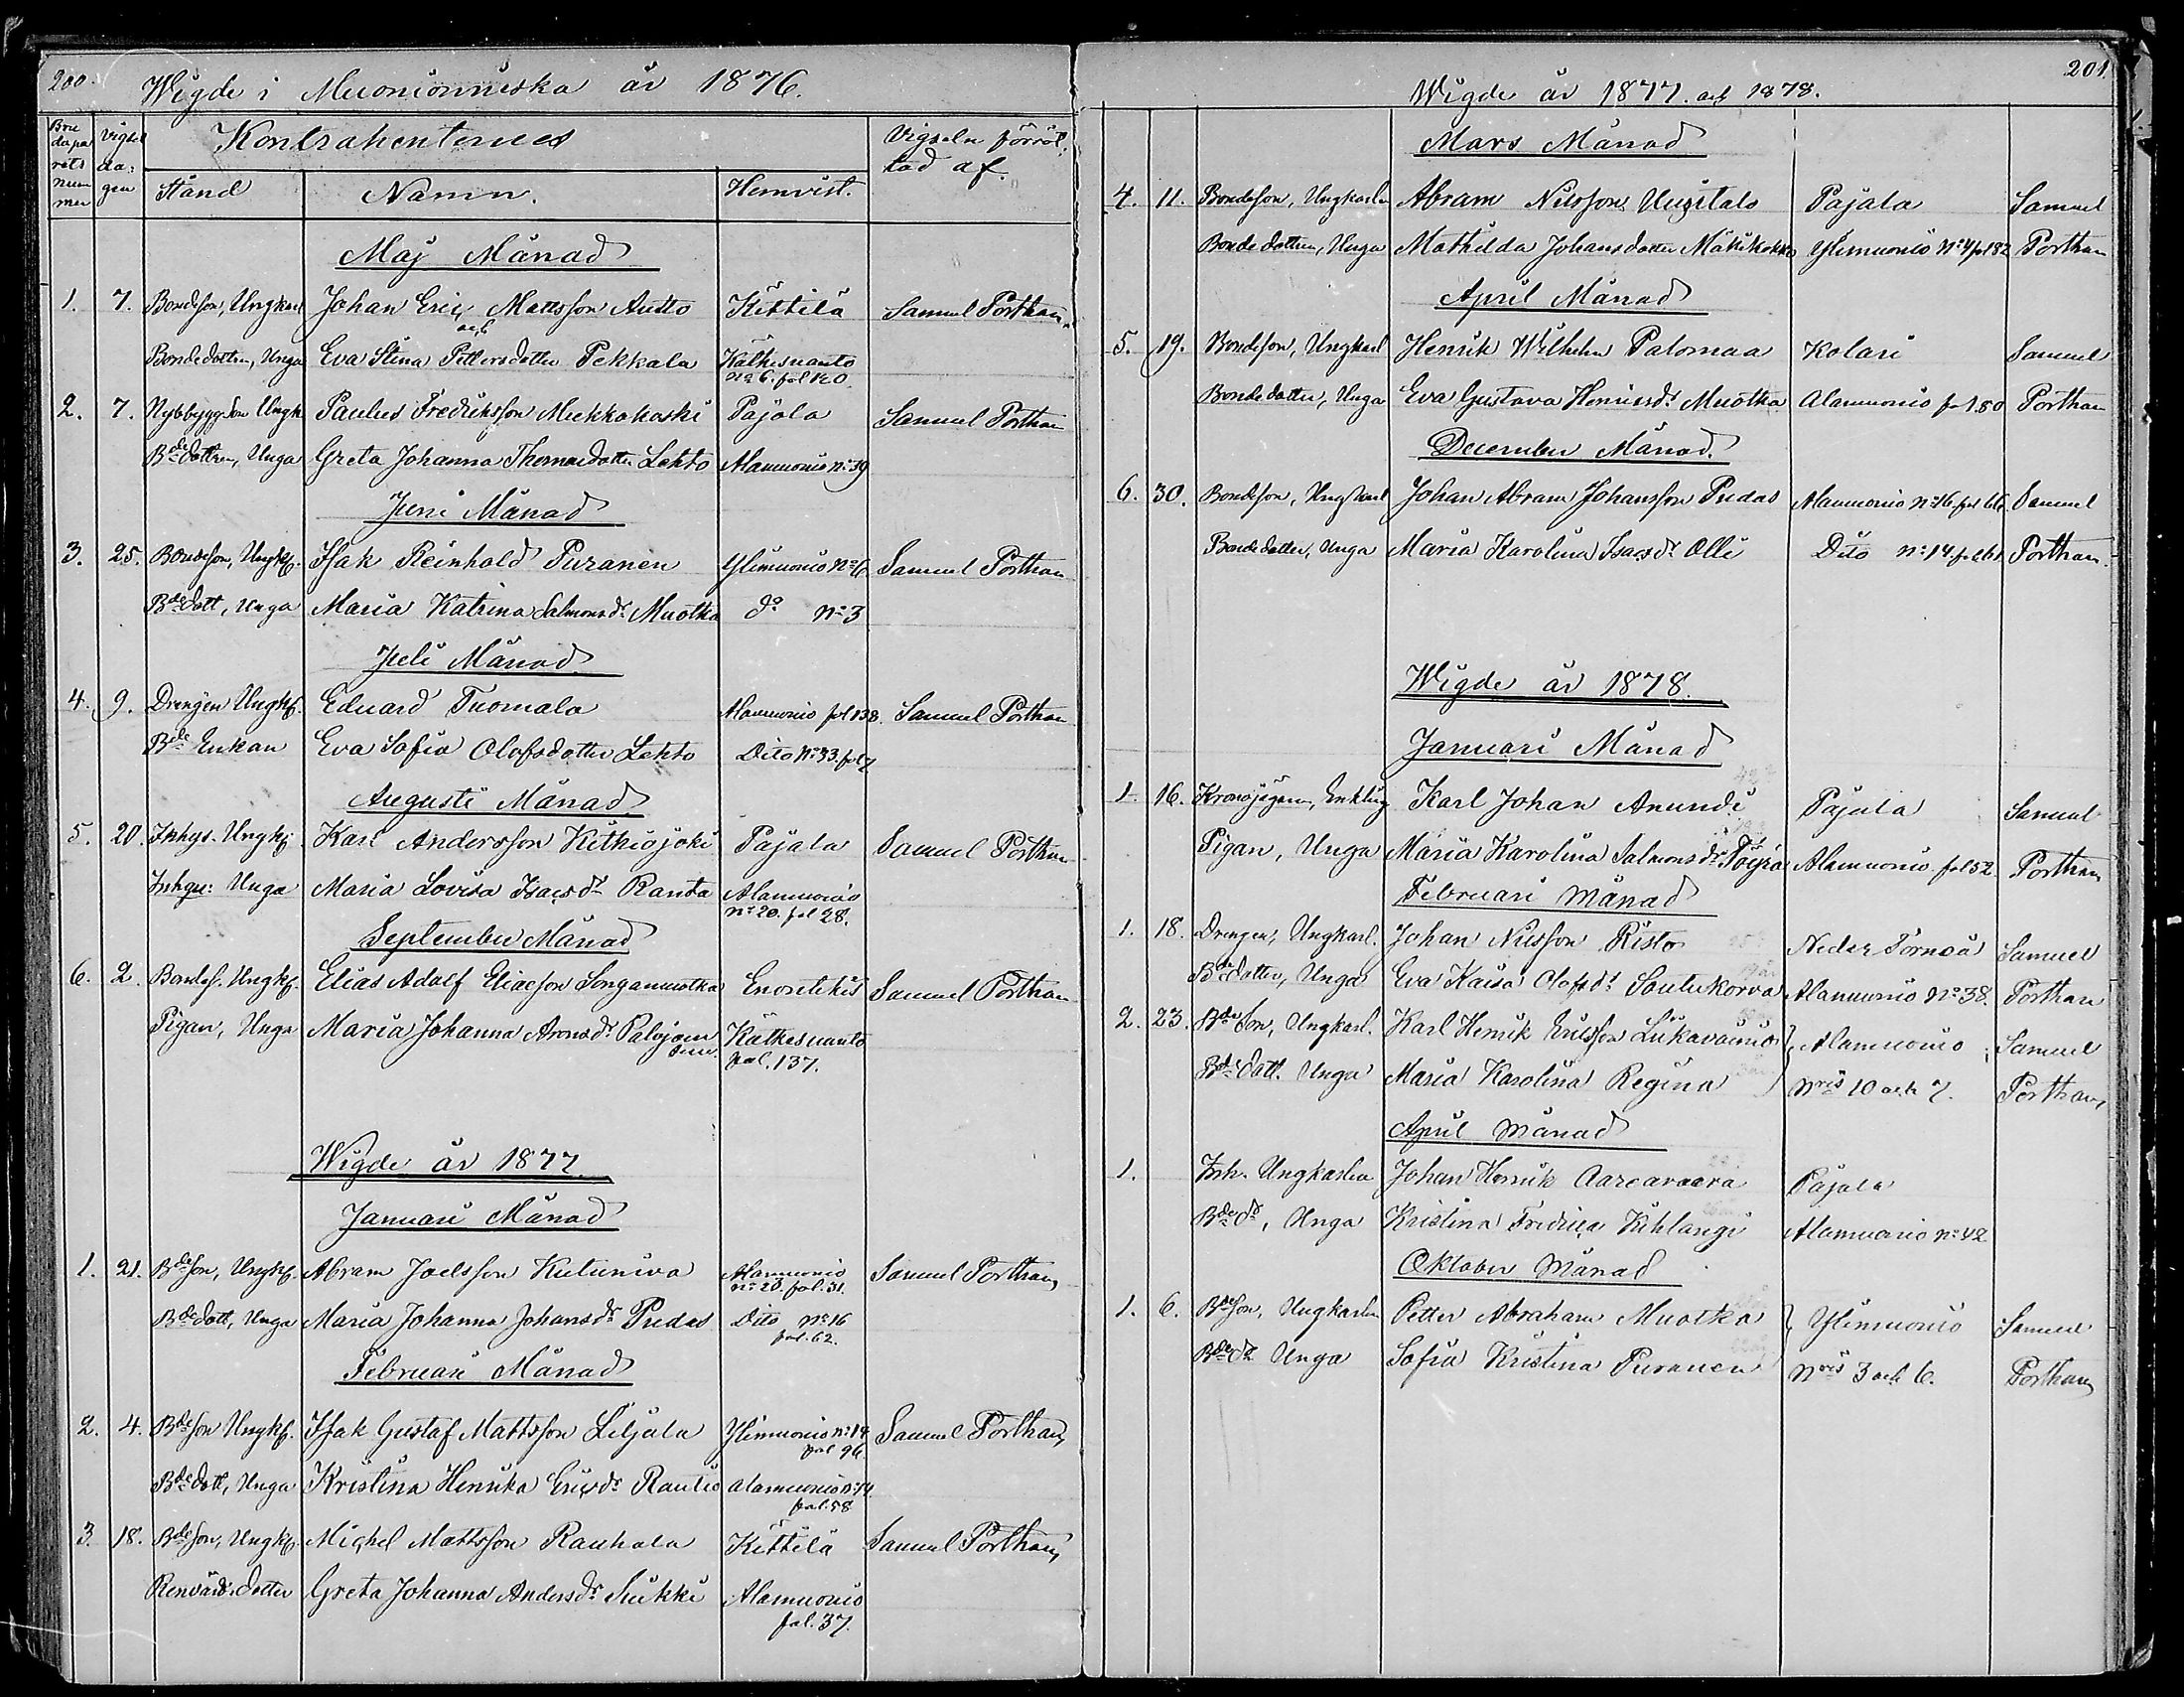 200.
Wigde i Muonionniska år 1876.
Bru
dapa
rets
num
mer
Vigsel
da:
gen
Kontrahenternes
Stånd
Namn.
Hemvist.
Vigseln förrät,
tad af.
Maj Månad
1. 7. Bondeson, Ungkarl Johan Eric Mattsson Austo Kittilä Samuel Porthan
och
Bondedottren, Unga Eva Stina Pettersdotter Pekkala Kätkesuanto
No 6. fol 120.
2. 7. Nybbygg.son Ungk Paulus Fredriksson Mukkakoski Pajala Samuel Porthan
Bdedottren, Unga Greta Johanna Thomasdotter Lehto Alamuonio No 39
Juni Månad
3. 25. Bondeson, Ungkl. Isak Reinhold Puranen Ylimuonio No 6 Samuel Porthan
Bdedott, Unga Maria Katrina Salmonsdr Muotka do No 3
Juli Månad
4. 9. Drengen Ungkl. Eduard Tuomala Alamuonio fol 138. Samuel Porthan
Bde Enkan Eva Sofia Olofsdotter Lehto Dito No 33. fol 7
Augusti Månad
5. 20. Inhys. Ungkl Karl Andersson Kitkiojoki Pajala Samuel Porthan
Inhys: Unga Maria Lovisa Isacsdr Ranta Alamuonio
No 20. fol 28.
September Månad
6. 2. Bondes. Ungkl. Elias Adolf Eliasson Songamuotka Enontekis Samuel Porthan
Pigan, Unga Maria Johanna Aronsdr Palojoensuu Kätkesuanto
fol. 137.
Wigde år 1877.
Januari Månad
1. 21. Bdeson, Ungkl. Abram Joelsson Kutuniva Alamuonio Samuel Porthan
No 20. fol. 31.
Bdedott, Unga Maria Johanna Johansdr Pudas Dito No 16
fol. 62.
Februari Månad
2. 4. Bdeson Ungkl. Isak Gustaf Mattsson Liljala Ylimuonio No 14 Samuel Porthan
fol 96
Bdedott, Unga Kristina Henrika Ericsdr Rautio Alamuonio No 14
fol. 58
3. 18. Bdeson, Ungkl Michel Mattsson Rauhala Kittilä Samuel Porthan
Renvärds Dotter Greta Johanna Andersdr Siikki Alamuonio
fol. 37.
201.
Wigde år 1877. och 1878.
Mars Månad
4. 11. Bondeson, Ungkarlen Abram Nilsson Uusitalo Pajala Samuel
Bonde dottren, Unga Mathilda Johansdotter Mäkikokko Ylimuonio No 4 fol 82 Porthan
April Månad
5. 19. Bondeson, Ungkarl Henrik Wilhelm Palomaa Kolari Samuel
Bonde dotter, Unga Eva Gustava Henricsdr Muotka Alamuonio fol. 50 Porthan
December Månad.
6. 30. Bondeson, Ungkarl Johan Abram Johansson Pudas Alamuonio No 16. fol 66. Samuel
Bonde dotter, Unga Maria Karolina Isacsdr Olli Dito No 14. fol 61 Porthan.
Wigde år 1878.
Januari Månad
1. 16. Kronojägarn, Enkling Karl Johan Anundi Pajala Samuel
Pigan, Unga Maria Karolina Salmonsdr Töyrä Alamuonio fol 52. Porthan
Februari Månad
1. 18. Drengen, Ungkarl. Johan Nilsson Risto Neder Torneå Samuel
Bdedotter, Unga Eva Kaisa Olofsdr Soutukorva Alamuonio No 38. Porthan
2. 23. Bdeson, Ungkarl. Karl Henrik Ericsson Liikavainio Alamuonio Samuel
Bdedott. Unga Maria Karolina Regina Nris 10 och 7. Porthan,
April Månad
1. Inh. Ungkarlen Johan Henrik Aareavaara Pajala
Bdedr, Unga Kristina Fredrica Kihlangi Alamuonio No 42
Oktober Månad
1. 6. Bdeson, Ungkarlen Petter Abraham Muotka Ylimuonio Samuel
Bdedr Unga Sofia Kristina Puranen Nris 3 och 6. Porthan